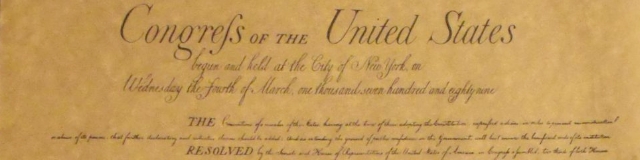 Congreſs OF THE United States
begun and held at the City of New York, on
Wednesday the Fourth of March, one thousand seven hundred and eighty nine
THE Conventions of a number of the States having at the time of their adopting the Constitution expressed a desire in order to prevent misconstruction
or abuse of its powers that further declaratory and restrictive clauses should be added And as extending the ground of public confidence in the Government will best ensure the beneficent ends of its institution
RESOLVED by the Senate and House of Representatives of the United States of America in Congress assembled two thirds of both Houses